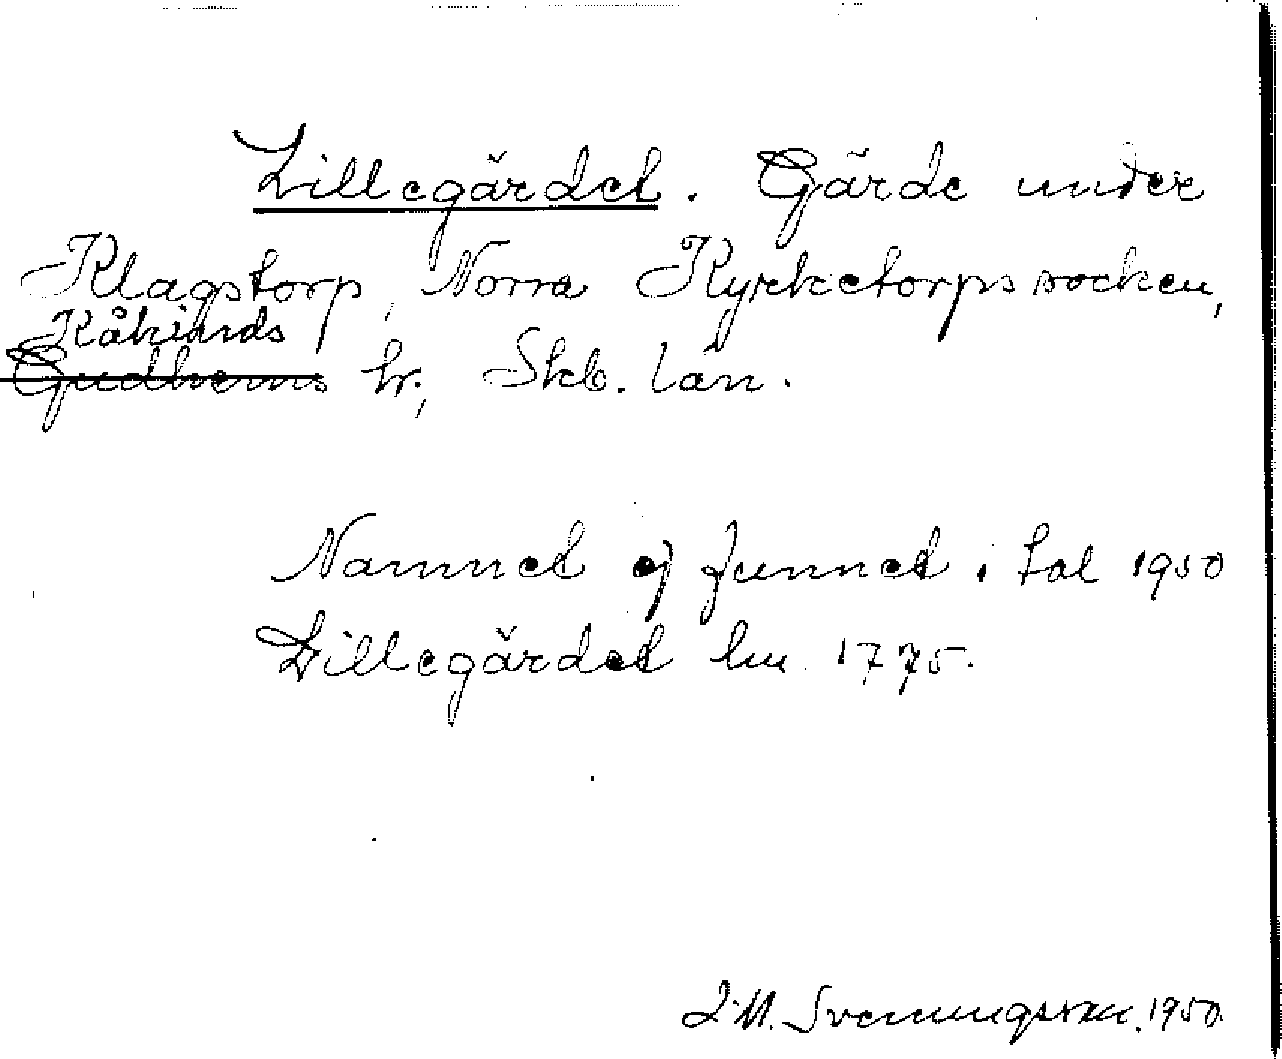 Lillegärdet. Gärde under
Klagstorp, Norra Kyrketorps socken,
Kåkinds
Gudhems hr, Skb. län.
Namnet ej funnet i tal 1950
Lillegärdet lm 1775.
Svenungsson. 1950.